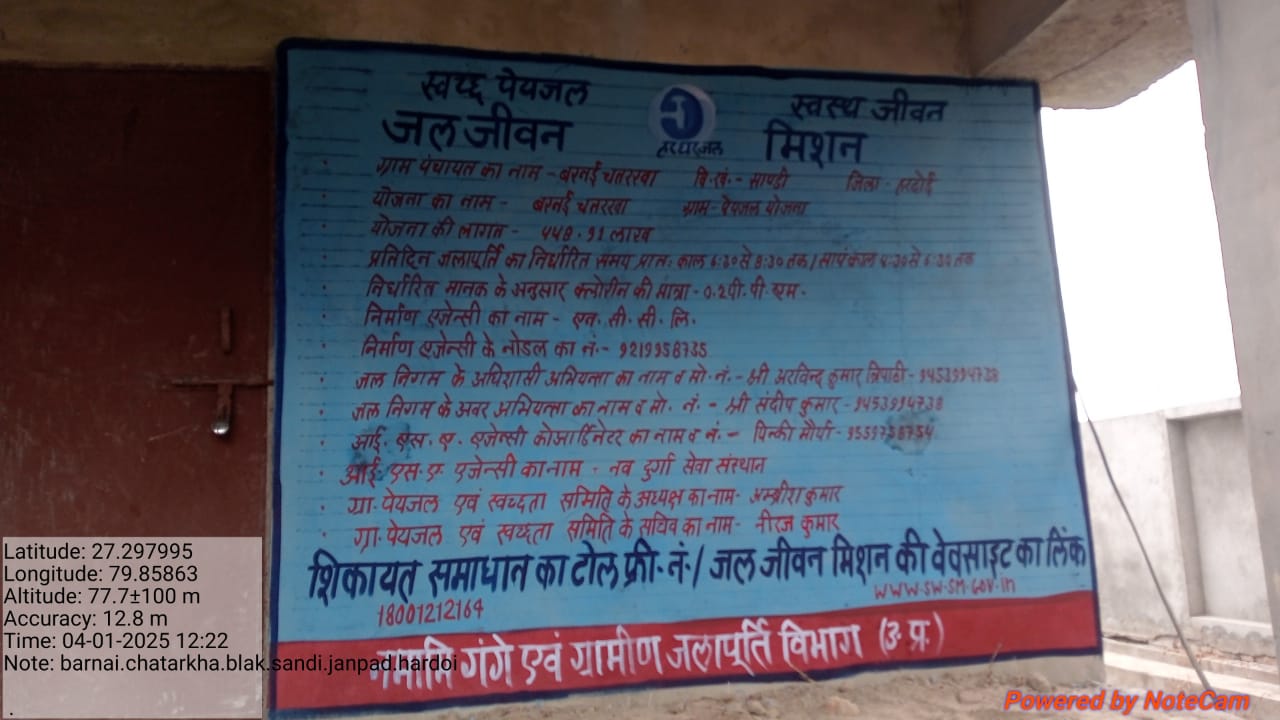 स्वच्छ पेयजल स्वस्थ जीवन
जल जीवन मिशन
हर घर जल
ग्राम पंचायत का नाम - बरनई चतरखा वि.खं.- साण्डी जिला - हरदोई
योजना का नाम - बरनई चतरखा ग्राम- पेयजल योजना
योजना की लागत - ५५८.११ लाख
प्रतिदिन जलापूर्ति का निर्धारित समय प्रातः काल 6:30 से 8:30 तक / सायं काल 4:30 से 6:30 तक
निर्धारित मानक के अनुसार क्लोरीन की मात्रा - 0.2 पी. पी. एम.
निर्माण एजेन्सी का नाम - एन. सी. सी. लि.
निर्माण एजेन्सी के नोडल का नं.- 9219958735
जल निगम के अधिशासी अभियन्ता का नाम व मो. नं.- श्री अरविन्द कुमार त्रिपाठी - 9453994738
जल निगम के अवर अभियन्ता का नाम व मो. नं. - श्री संदीप कुमार - 9453994738
आई. एस. ए. एजेन्सी कोआर्डिनेटर का नाम व नं. - पिन्की मौर्या -
आई. एस. ए. एजेन्सी का नाम - नव दुर्गा सेवा संस्थान
ग्रा. पेयजल एवं स्वच्छता समिति के अध्यक्ष का नाम- अम्ब्रीश कुमार
ग्रा. पेयजल एवं स्वच्छता समिति के सचिव का नाम- नीरज कुमार
शिकायत समाधान का टोल फ्री. नं. / जल जीवन मिशन की वेवसाइट का लिंक
18001212164 www.sw.sm.gov.in
नमामि गंगे एवं ग्रामीण जलापूर्ति विभाग (उ. प्र.)
Latitude: 27.297995
Longitude: 79.85863
Altitude: 77.7±100 m
Accuracy: 12.8 m
Time: 04-01-2025 12:22
Note: barnai.chatarkha.blak.sandi.janpad.hardoi
.
Powered by NoteCam